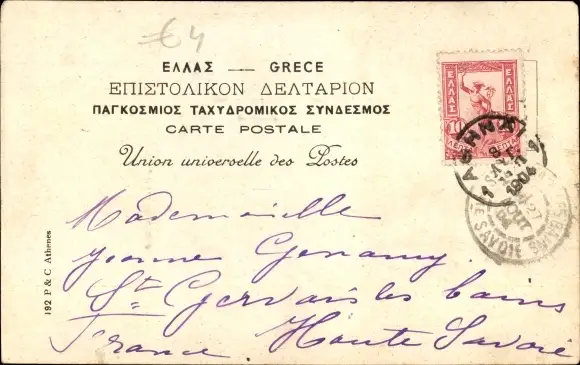 €4
ΕΛΛΑΣ — GRECE
ΕΠΙΣΤΟΛΙΚΟΝ ΔΕΛΤΑΡΙΟΝ
ΠΑΓΚΟΣΜΙΟΣ ΤΑΧΥΔΡΟΜΙΚΟΣ ΣΥΝΔΕΣΜΟΣ
CARTE POSTALE
Union universelle des Postes
ΕΛΛΑΣ
ΕΛΛΑΣ
10
ΑΘΗΝΑΙ
1904
SAVOIE
Mademoiselle
Jeanne Genamy
St. Gervais les bains
France Haute Savoie
192 P & C Athenes